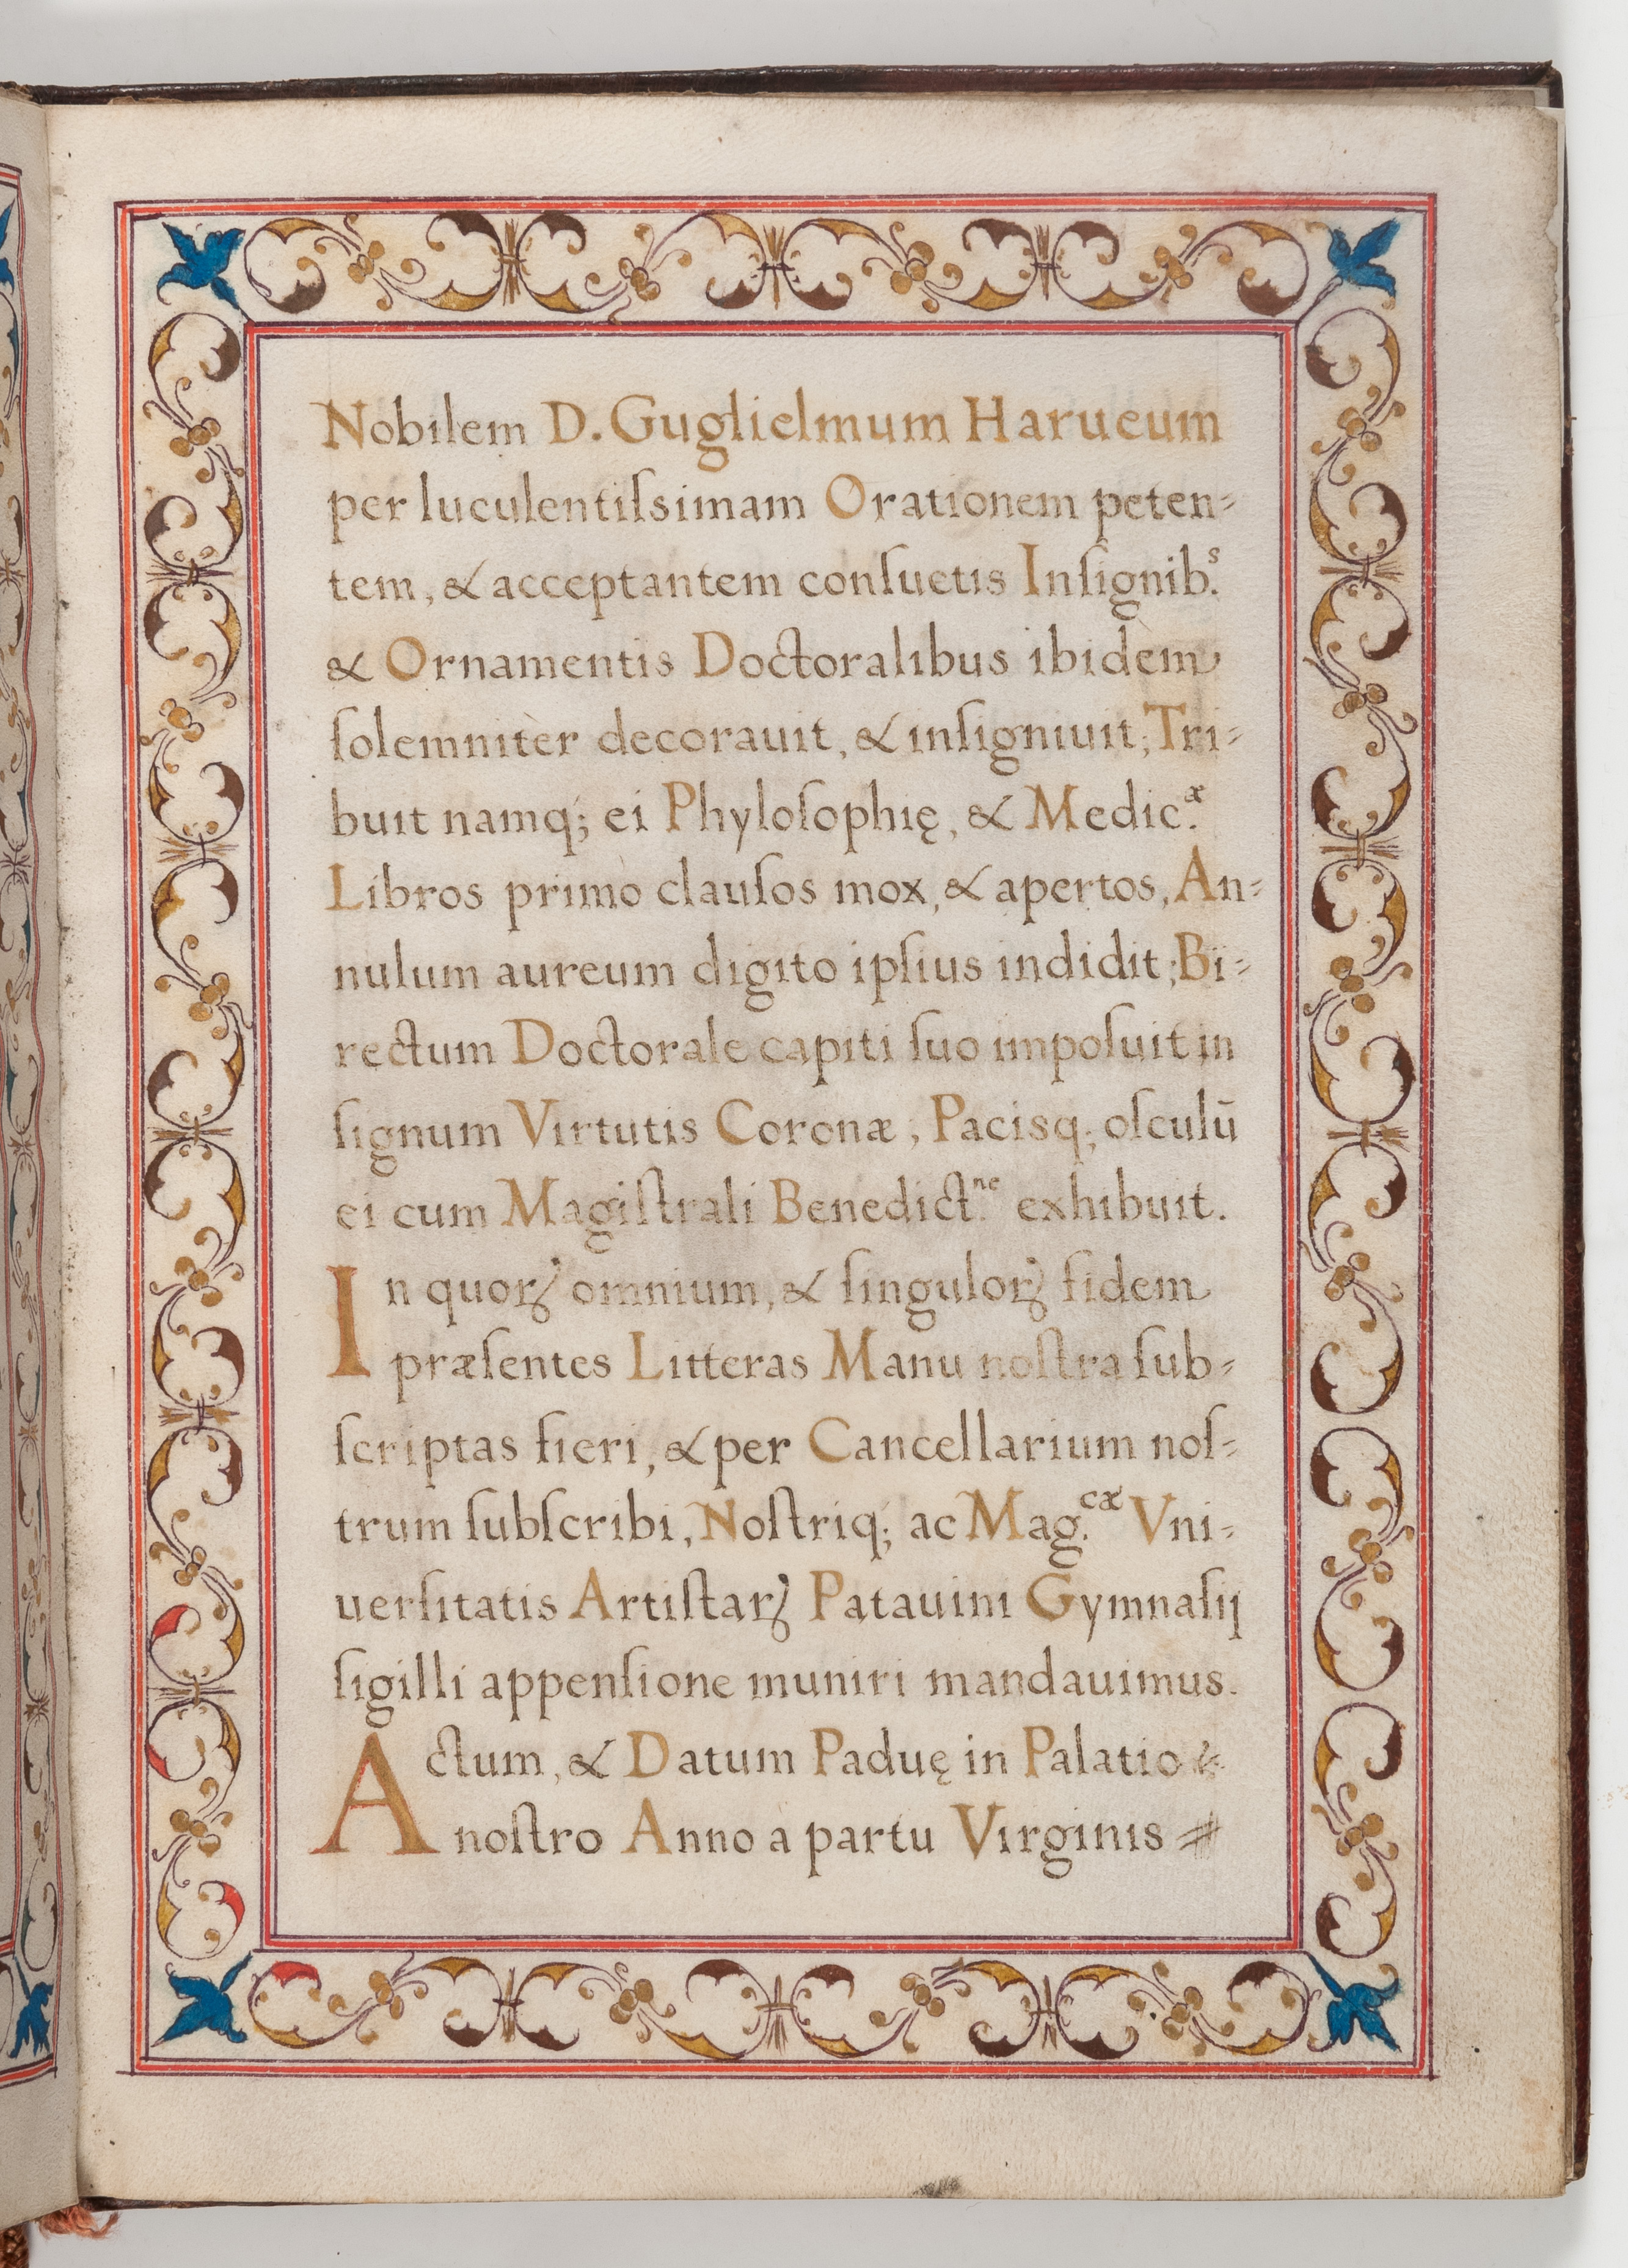 Nobilem D. Guglielmum Harueum
per luculentiſsimam Orationem peten⸗
tem, & acceptantem conſuetis Inſignib.ˢ
& Ornamentis Doctoralibus ibidèm
ſolemnitèr decorauit, & inſigniuit; Tri⸗
buit namq́; ei Phyloſophię, & Medic.æ
Libros primò clauſos mox, & apertos, An⸗
nulum aureum digito ipſius indidit; Bi⸗
rectum Doctorale capiti ſuo impoſuit in
ſignum Virtutis Coronæ, Pacisq; oſculũ
ei cum Magiſtrali Benedict.ⁿᵉ exhibuit.
In quorꝝ omnium, & ſingulorꝝ fidem
præſentes Litteras Manu noſtra ſub⸗
ſcriptas fieri, & per Cancellarium noſ⸗
trum ſubſcribi, Noſtriq; ac Mag.cæ Vni⸗
uerſitatis Artiſtarꝝ Patauini Gymnaſij
ſigilli appenſione muniri mandauimus.
Actum, & Datum Paduę in Palatio
noſtro Anno à partu Virginis